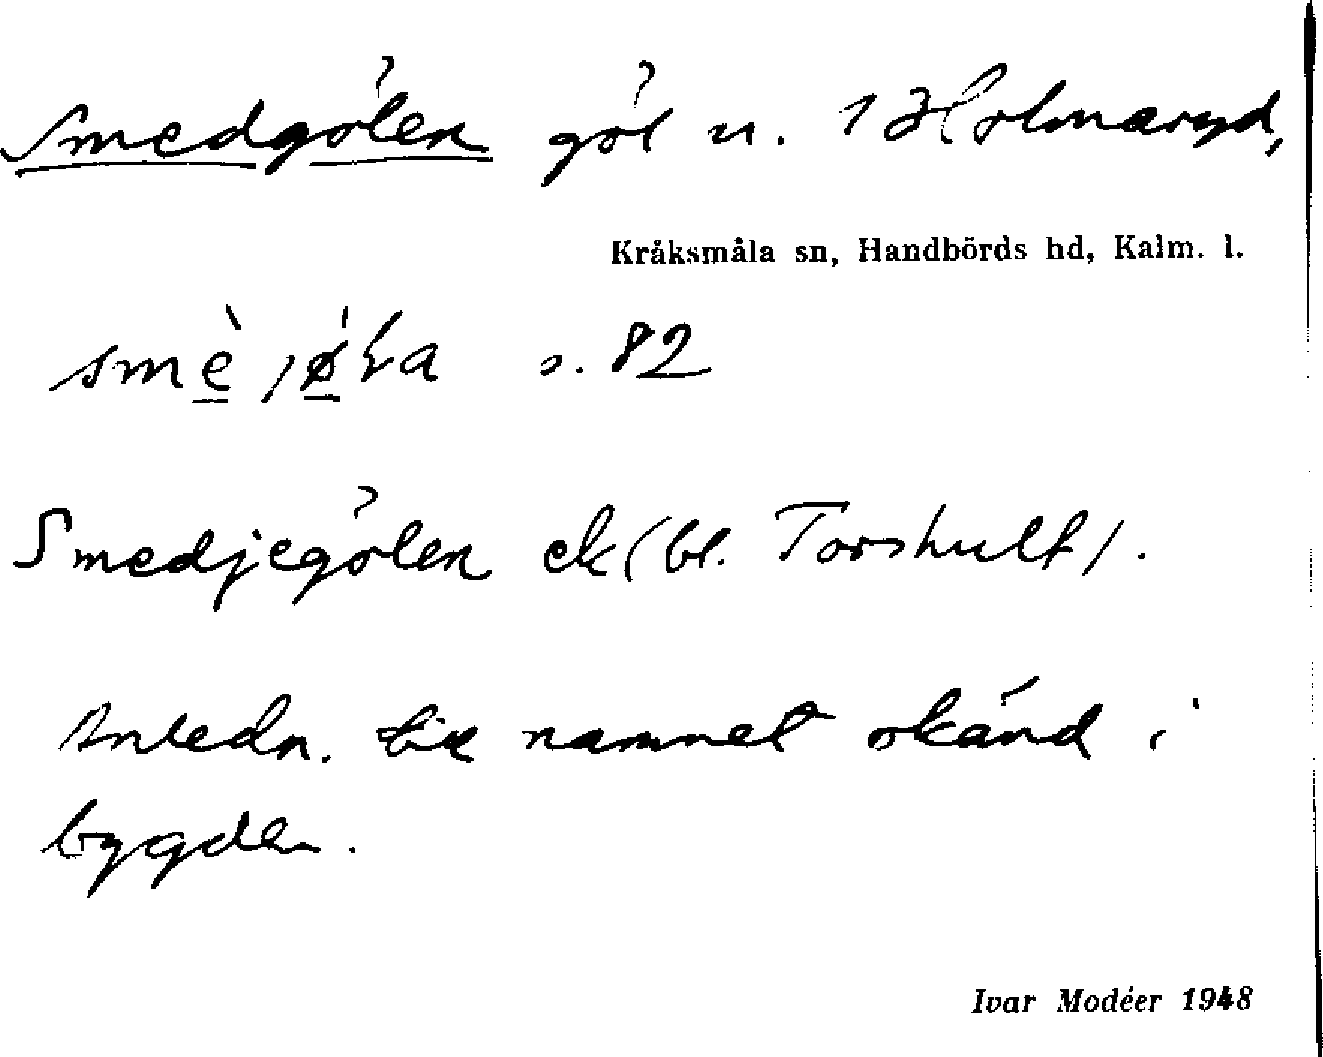 Smedgölen göl n. 1 Holmaryd,
Kråksmåla sn, Handbörds hd, Kalm. l.
s. 82
Smedjegölen ek (bl. Torshult).
Anledn. till namnet okänd i
bygden.
Ivar Modéer 1948